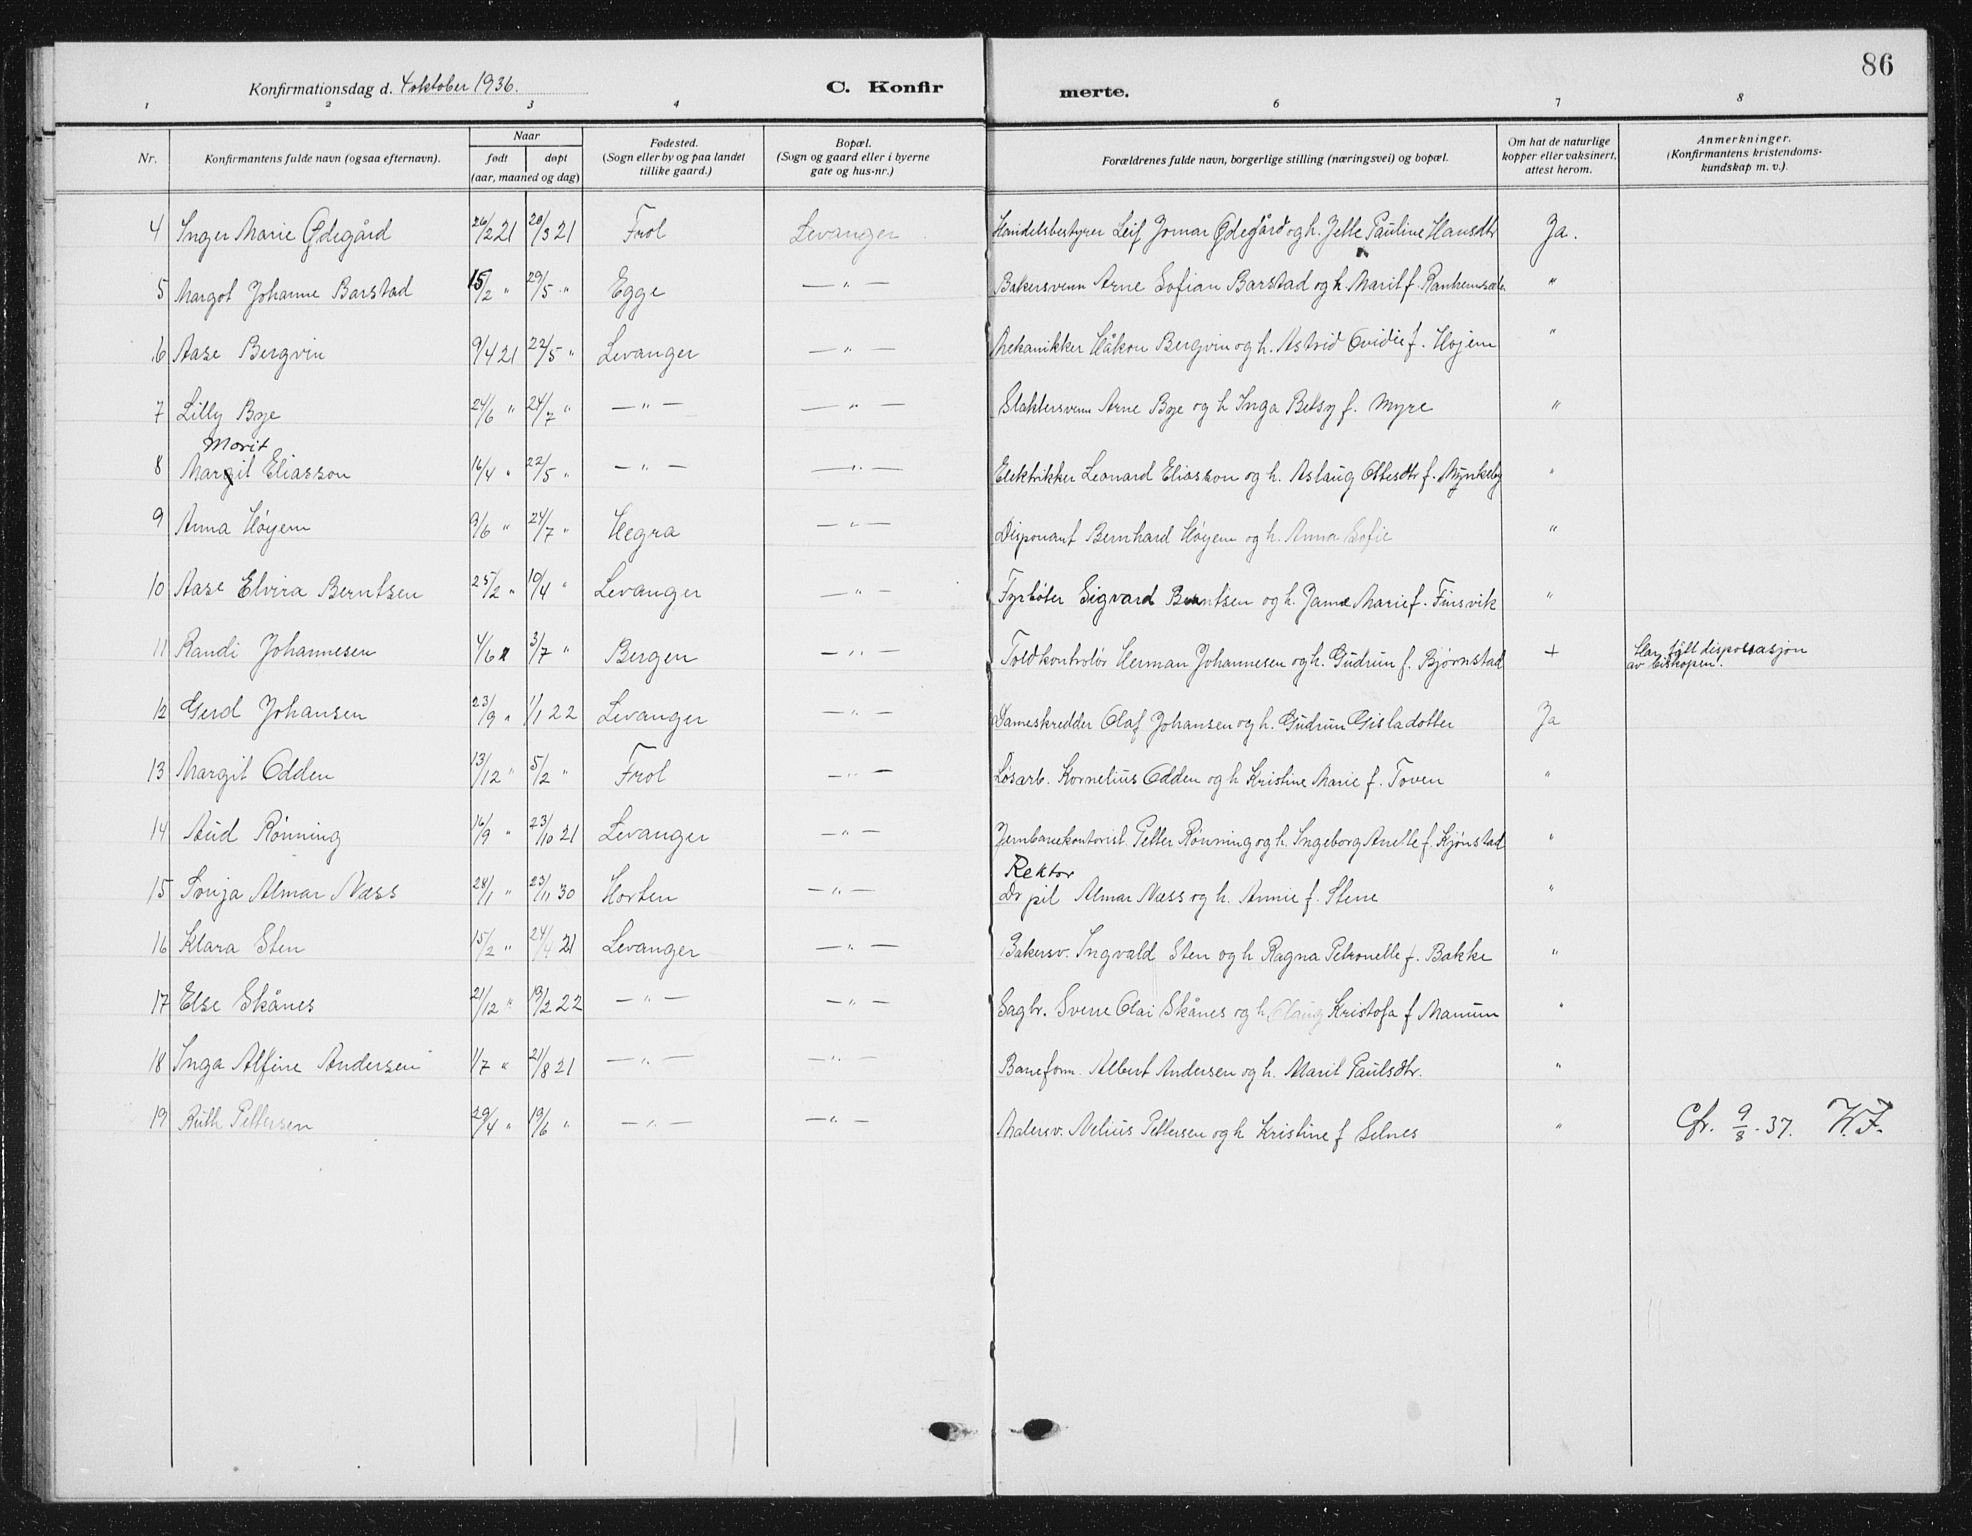 86
Konfirmationsdag d. 4 oktober 1936. C. Konfirmerte.
1 2 3 4 6 7 8
Nr. Konfirmantens fulde navn (ogsaa efternavn). Naar født døpt (aar, maaned og dag) Fødested. (Sogn eller by og paa landet tillike gaard.) Bopæl. (Sogn og gaard eller i byerne gate og hus-nr.) Forældrenes fulde navn, borgerlige stilling (næringsvei) og bopæl. Om hat de naturlige kopper eller vaksinert, attest herom. Anmerkninger. (Konfirmantens kristendoms-kundskap m. v.).
4 Inger Marie Ødegård 26/2 21 20/3 21 Frol Levanger Handelsbestyrer Leif Jomar Ødegård og h. Jelle Pauline Hansdtr Ja.
5 Margot Johanne Barstad 15/2 " 29/5 " Egge — " — Bakersvenn Arne Sofian Barstad og h. Marit f. "
6 Aase Bergvin 9/4 21 22/5 " Levanger — " — Mekanikker Håkon Bergvin og h. Astrid Ovidie f. Højem "
7 Lilly Bye 24/6 " 24/7 " — " — — " — Slaktersvenn Arne Bye og h Inga Betsy f. Myre "
Morit
8 Margit Eliasson 16/4 " 22/5 " — " — — " — Elektrikker Leonard Eliasson og h. Aslaug Ottesdtr f. Mynkeby "
9 Anna Høyem 9/6 " 24/7 " Hegra — " — Disponant Bernhard Høyem og h. Anna Sofie "
10 Aase Elvira Berntsen 25/2 " 10/4 " Levanger — " — Fyrbøter Sigvard Berntsen og h. Janna Marie f. Finsvik "
11 Randi Johannesen 4/6 " 3/7 " Bergen — " — Toldkontrolør Herman Johannesen og h. Gudrun f. Bjørnstad + Har fått dispossasjon av biskopen.
12 Gerd Johansen 23/9 " 1/1 22 Levanger — " — Dameskredder Olaf Johansen og h. Gudrun Gisladotter Ja
13 Margit Odden 13/12 " 5/2 " Frol — " — Løsarb. Kornelius Odden og h Kristine Marie f. Toven "
14 Aud Rønning 16/9 " 23/10 21 Levanger — " — Jernbanekontorist. Petter Rønning og h. Ingeborg Anette f. Kjønstad "
Rektor
15 Sonja Almar Næss 28/1 " 23/11 30 Horten — " — Dr pil Almar Næss og h. Annie f. Stene "
16 Klara Sten 15/2 " 24/4 21 Levanger — " — Bakersv. Ingvald Sten og h Ragna Petronelle f. Bakke "
17 Else Skånes 21/12 " 19/2 22 — " — — " — Sagbr. Sverre Olai Skånes og h Olaug Kristofa f Manum "
18 Inga Alfine Andersen 1/7 " 21/8 21 — " — — " — Baneform. Albert Andersen og h. Marit Paulsdtr. "
19 Ruth Pettersen 29/4 " 19/6 " — " — — " — Malersv. Nelius Pettersen og h Kristine f Selnes " Cfr. 9/8 . 37. W.F.